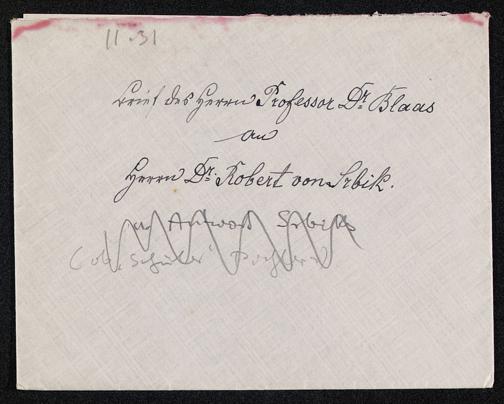 11.31
Brief des Herrn Professor Dr. Blaas
an
Herrn Dr. Robert von Srbik.
Antwort Srbiks